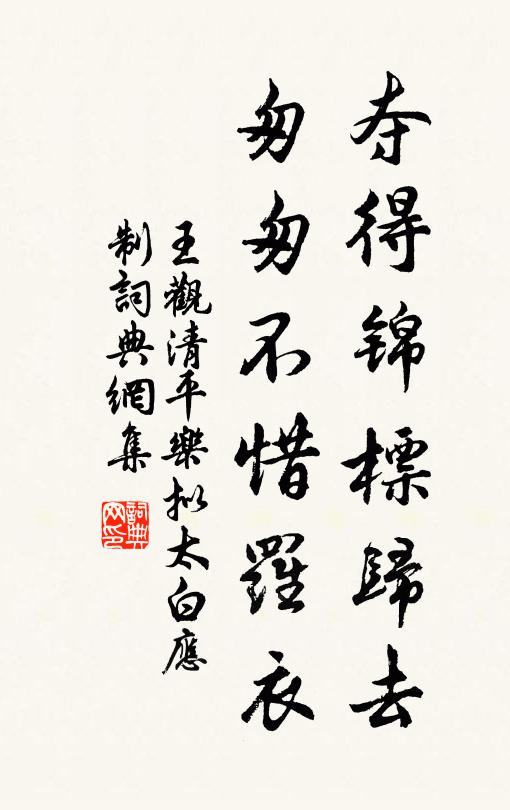 夺得锦標歸去
匆匆不惜羅衣
王觀清平樂拟太白應
制詞典網集
詞典
网印